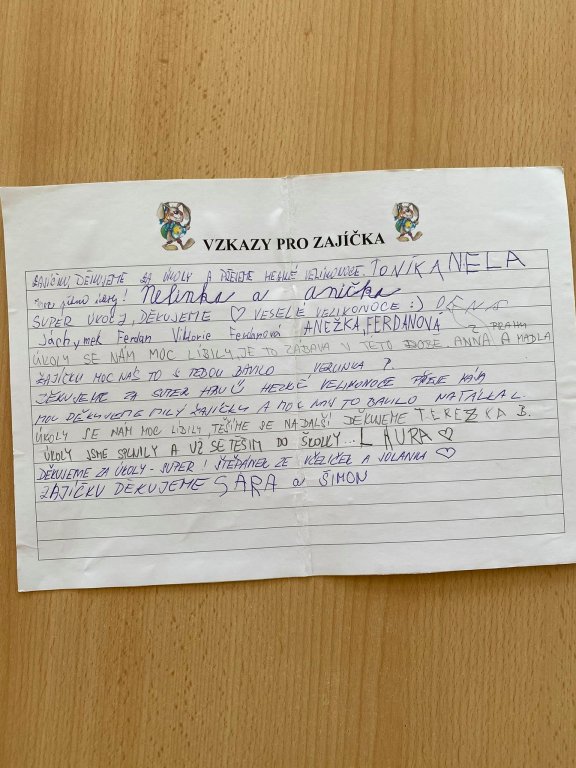 VZKAZY PRO ZAJÍČKA
ZAJÍČKU, DĚKUJEME ZA ÚKOLY A PŘEJEME HEZKÉ VELIKONOCE. TONÍK A NELA
Nelinka a anička
SUPER ÚKOLY, DĚKUJEME ♡ VESELÉ VELIKONOCE :) DENA
Jáchymek Ferdan Viktorie Ferdanová ANEŽKA FERDANOVÁ Z PRAHY
ÚKOLY SE NÁM MOC LÍBILY, JE TO ZÁBAVA V TÉTO DOBĚ. ANNA A MADLA
ZAJÍČKU MOC NÁS TO S TEBOU BAVILO VERUNKA P.
DĚKUJEME ZA SUPER HRU HEZKÉ VELIKONOCE PŘEJE KÁJA
MOC DĚKUJEME MILÝ ZAJÍČKU A MOC NÁS TO BAVILO NATÁLKA L.
ÚKOLY SE NÁM MOC LÍBILY, TĚŠÍME SE NA DALŠÍ DĚKUJEME TEREZKA B.
ÚKOLY JSME SPLNILY A UŽ SE TEŠIM DO ŠKOLKY... LAURA ♡
DĚKUJEME ZA ÚKOLY - SUPER! ŠTĚPÁNEK ZE VČELIČEK A JOLANKA ♡
ZAJÍČKU DĚKUJEME SÁRA a ŠIMON